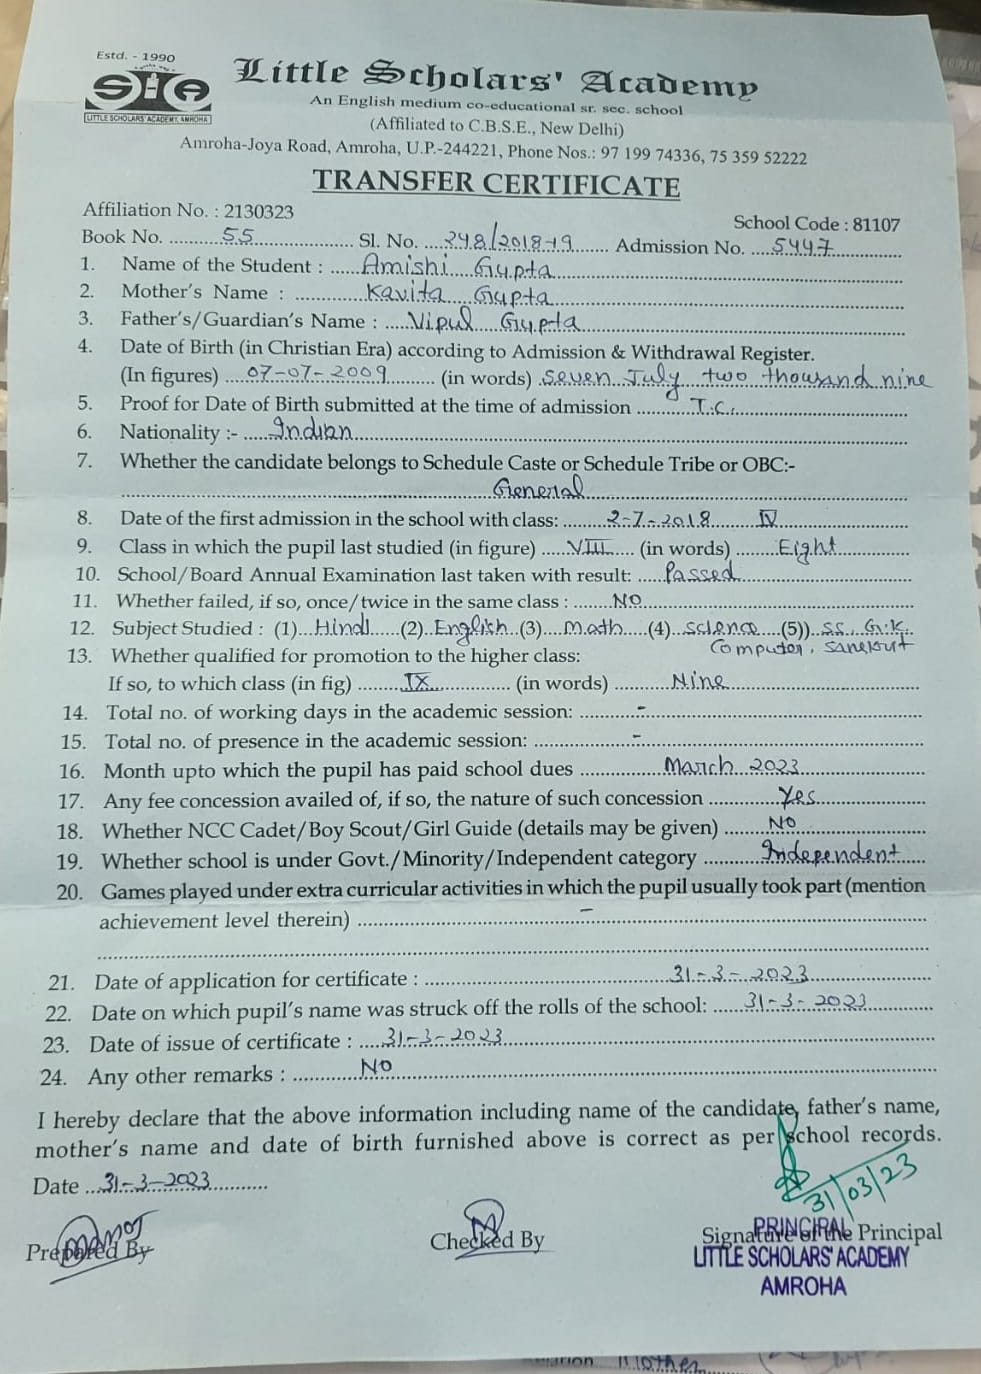 Estd. - 1990
SLA
LITTLE SCHOLARS' ACADEMY, AMROHA
Little Scholars' Academy
An English medium co-educational sr. sec. school
(Affiliated to C.B.S.E., New Delhi)
Amroha-Joya Road, Amroha, U.P.-244221, Phone Nos.: 97 199 74336, 75 359 52222
TRANSFER CERTIFICATE
Affiliation No. : 2130323 School Code : 81107
Book No. 55 Sl. No. 248/2018-19 Admission No. 5447
1. Name of the Student : Amishi Gupta
2. Mother's Name : Kavita Gupta
3. Father's/Guardian's Name : Vipul Gupta
4. Date of Birth (in Christian Era) according to Admission & Withdrawal Register.
(In figures) 07-07-2009 (in words) seven July two thousand nine
5. Proof for Date of Birth submitted at the time of admission T.C.
6. Nationality :- Indian
7. Whether the candidate belongs to Schedule Caste or Schedule Tribe or OBC:-
General
8. Date of the first admission in the school with class: 2-7-2018 IV
9. Class in which the pupil last studied (in figure) VIII (in words) Eight
10. School/Board Annual Examination last taken with result: Passed
11. Whether failed, if so, once/twice in the same class : NO
12. Subject Studied : (1) Hindi (2) English (3) math (4) science (5)) SS, G.K.
Computer, Sanskrit
13. Whether qualified for promotion to the higher class:
If so, to which class (in fig) IX (in words) Nine
14. Total no. of working days in the academic session: -
15. Total no. of presence in the academic session: -
16. Month upto which the pupil has paid school dues March 2023
17. Any fee concession availed of, if so, the nature of such concession Yes
18. Whether NCC Cadet/Boy Scout/Girl Guide (details may be given) NO
19. Whether school is under Govt./Minority/Independent category Independent
20. Games played under extra curricular activities in which the pupil usually took part (mention
achievement level therein) -
21. Date of application for certificate : 31-3-2023
22. Date on which pupil's name was struck off the rolls of the school: 31-3-2023
23. Date of issue of certificate : 31-3-2023
24. Any other remarks : NO
I hereby declare that the above information including name of the candidate, father's name,
mother's name and date of birth furnished above is correct as per school records.
Date 31-3-2023
31/03/23
Prepared By Checked By Signature of the Principal
PRINCIPAL
LITTLE SCHOLARS' ACADEMY
AMROHA
Mother